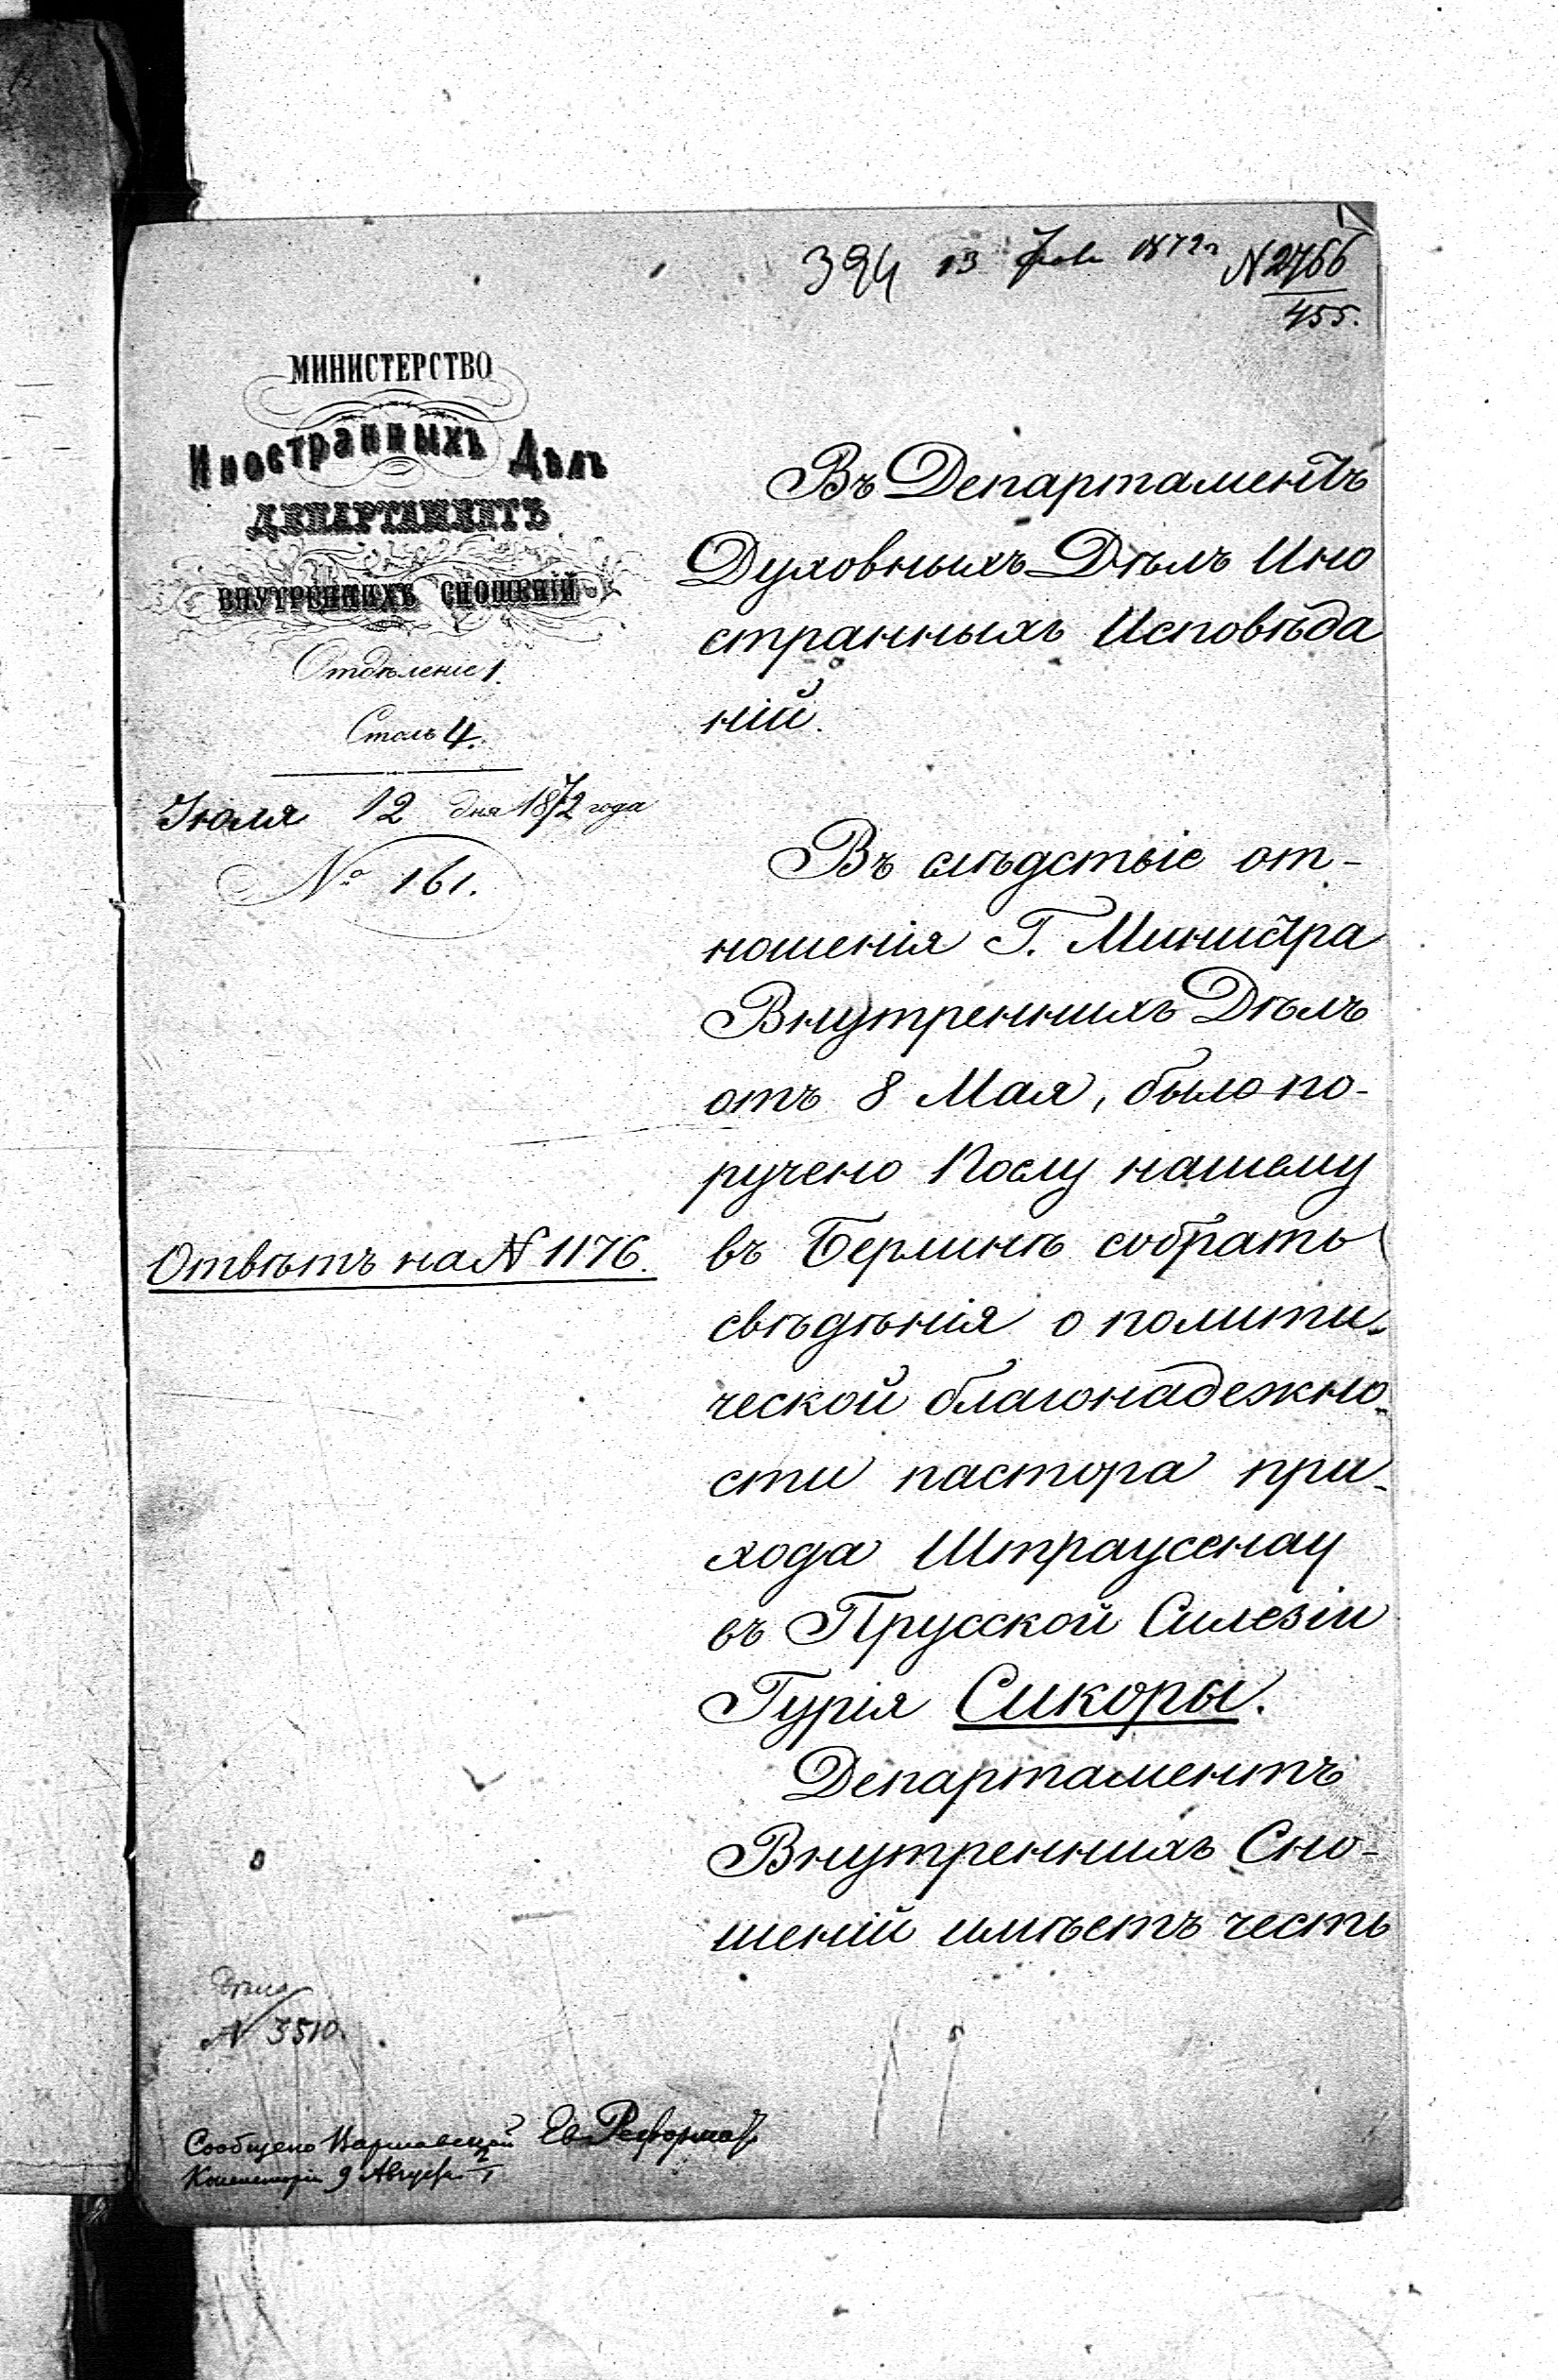 394 13 Іюля 1872 г. № 2766
455.
МИНИСТЕРСТВО
Иностранныхъ Дѣлъ
ДЕПАРТАМЕНТЪ
ВНУТРЕННИХЪ СНОШЕНІЙ
Отдѣленіе 1.
Столъ 4.
Іюля 12 дня 1872 года
№ 161.
Отвѣтъ на № 1176.
Въ Департаментъ
Духовныхъ Дѣлъ Ино
странныхъ Исповѣда
ній.
Въ слѣдствіе от-
ношенія Г. Министра
Внутреннихъ Дѣлъ
отъ 8 Мая, было по-
ручено Послу нашему
въ Берлинѣ собрать
свѣдѣнія о полити-
ческой благонадежно-
сти пастора при-
хода Штраусенау
въ Прусской Силезіи
Гурія Сикоры.
Департаментъ
Внутреннихъ Сно-
шеній имѣетъ честь
№ 3510.
Сообщено Варшавской Ев. Реформат.
Консисторіи 9 Августа